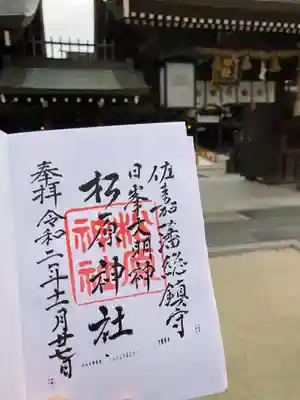 佐嘉藩総鎮守
日峯大明神
松原神社
松原神社
奉拝 令和二年十一月廿七日